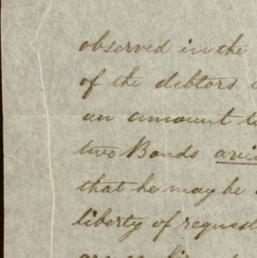 observed in the
of the debtors
an amount
two Bonds
that he may be
liberty of request